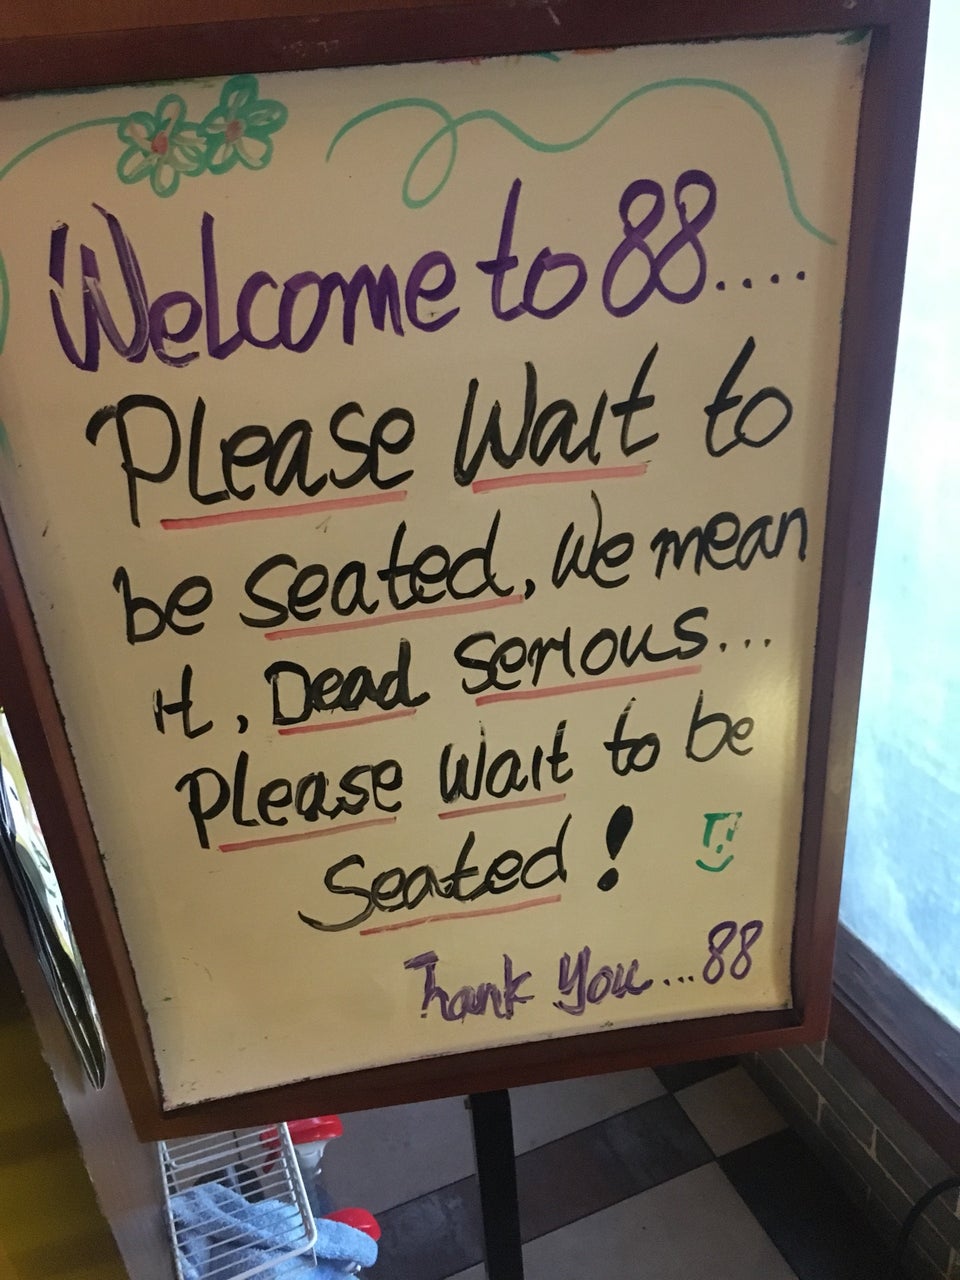 Welcome to 88....
Please Wait to
be Seated, We mean
it, Dead Serious...
Please Wait to be
Seated!
Thank You...88